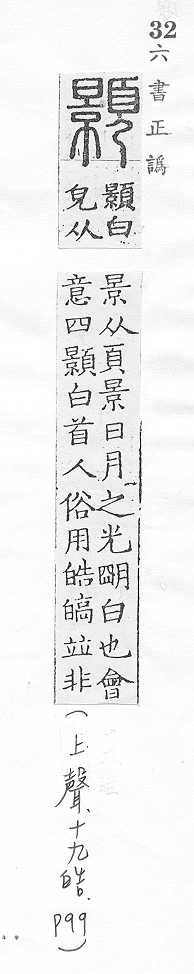 32
六書正譌
顥
顥白
皃从
景从頁景日月之光朙白也會
意四顥白首人俗用皓皜竝非
(上聲、十九皓. P99)